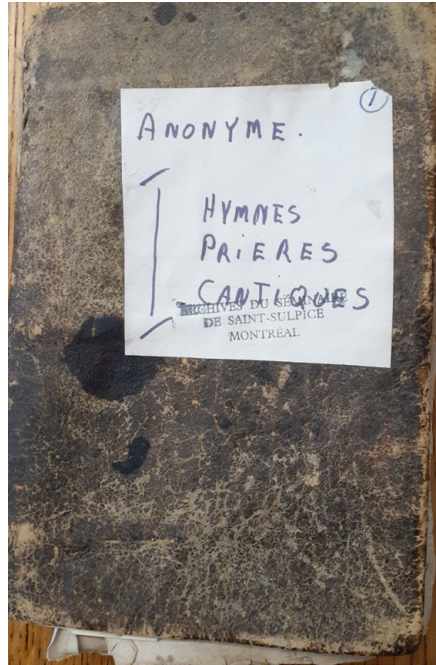 1
ANONYME.
HYMNES
PRIERES
CANTIQUES
ARCHIVES DU SÉMINAIRE
DE SAINT-SULPICE
MONTRÉAL